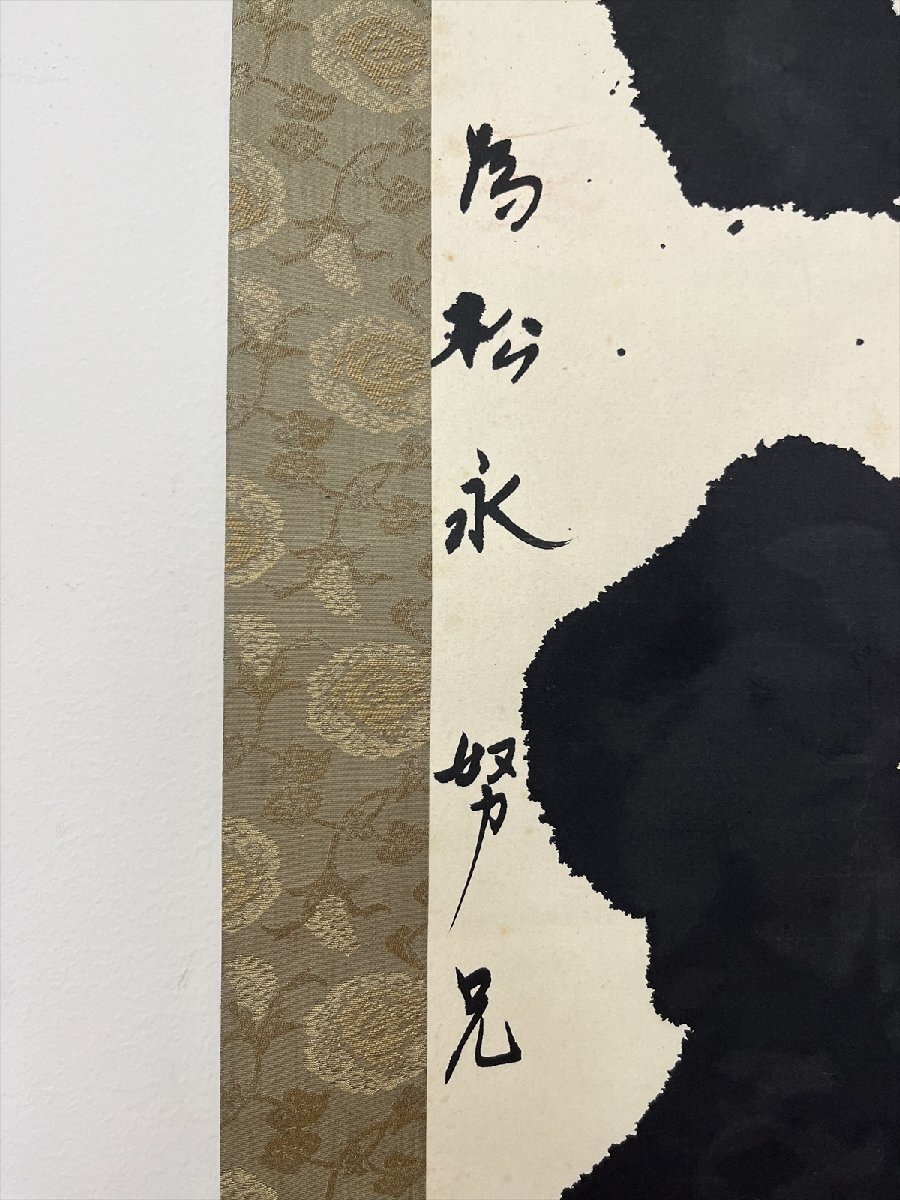 為松永努兄